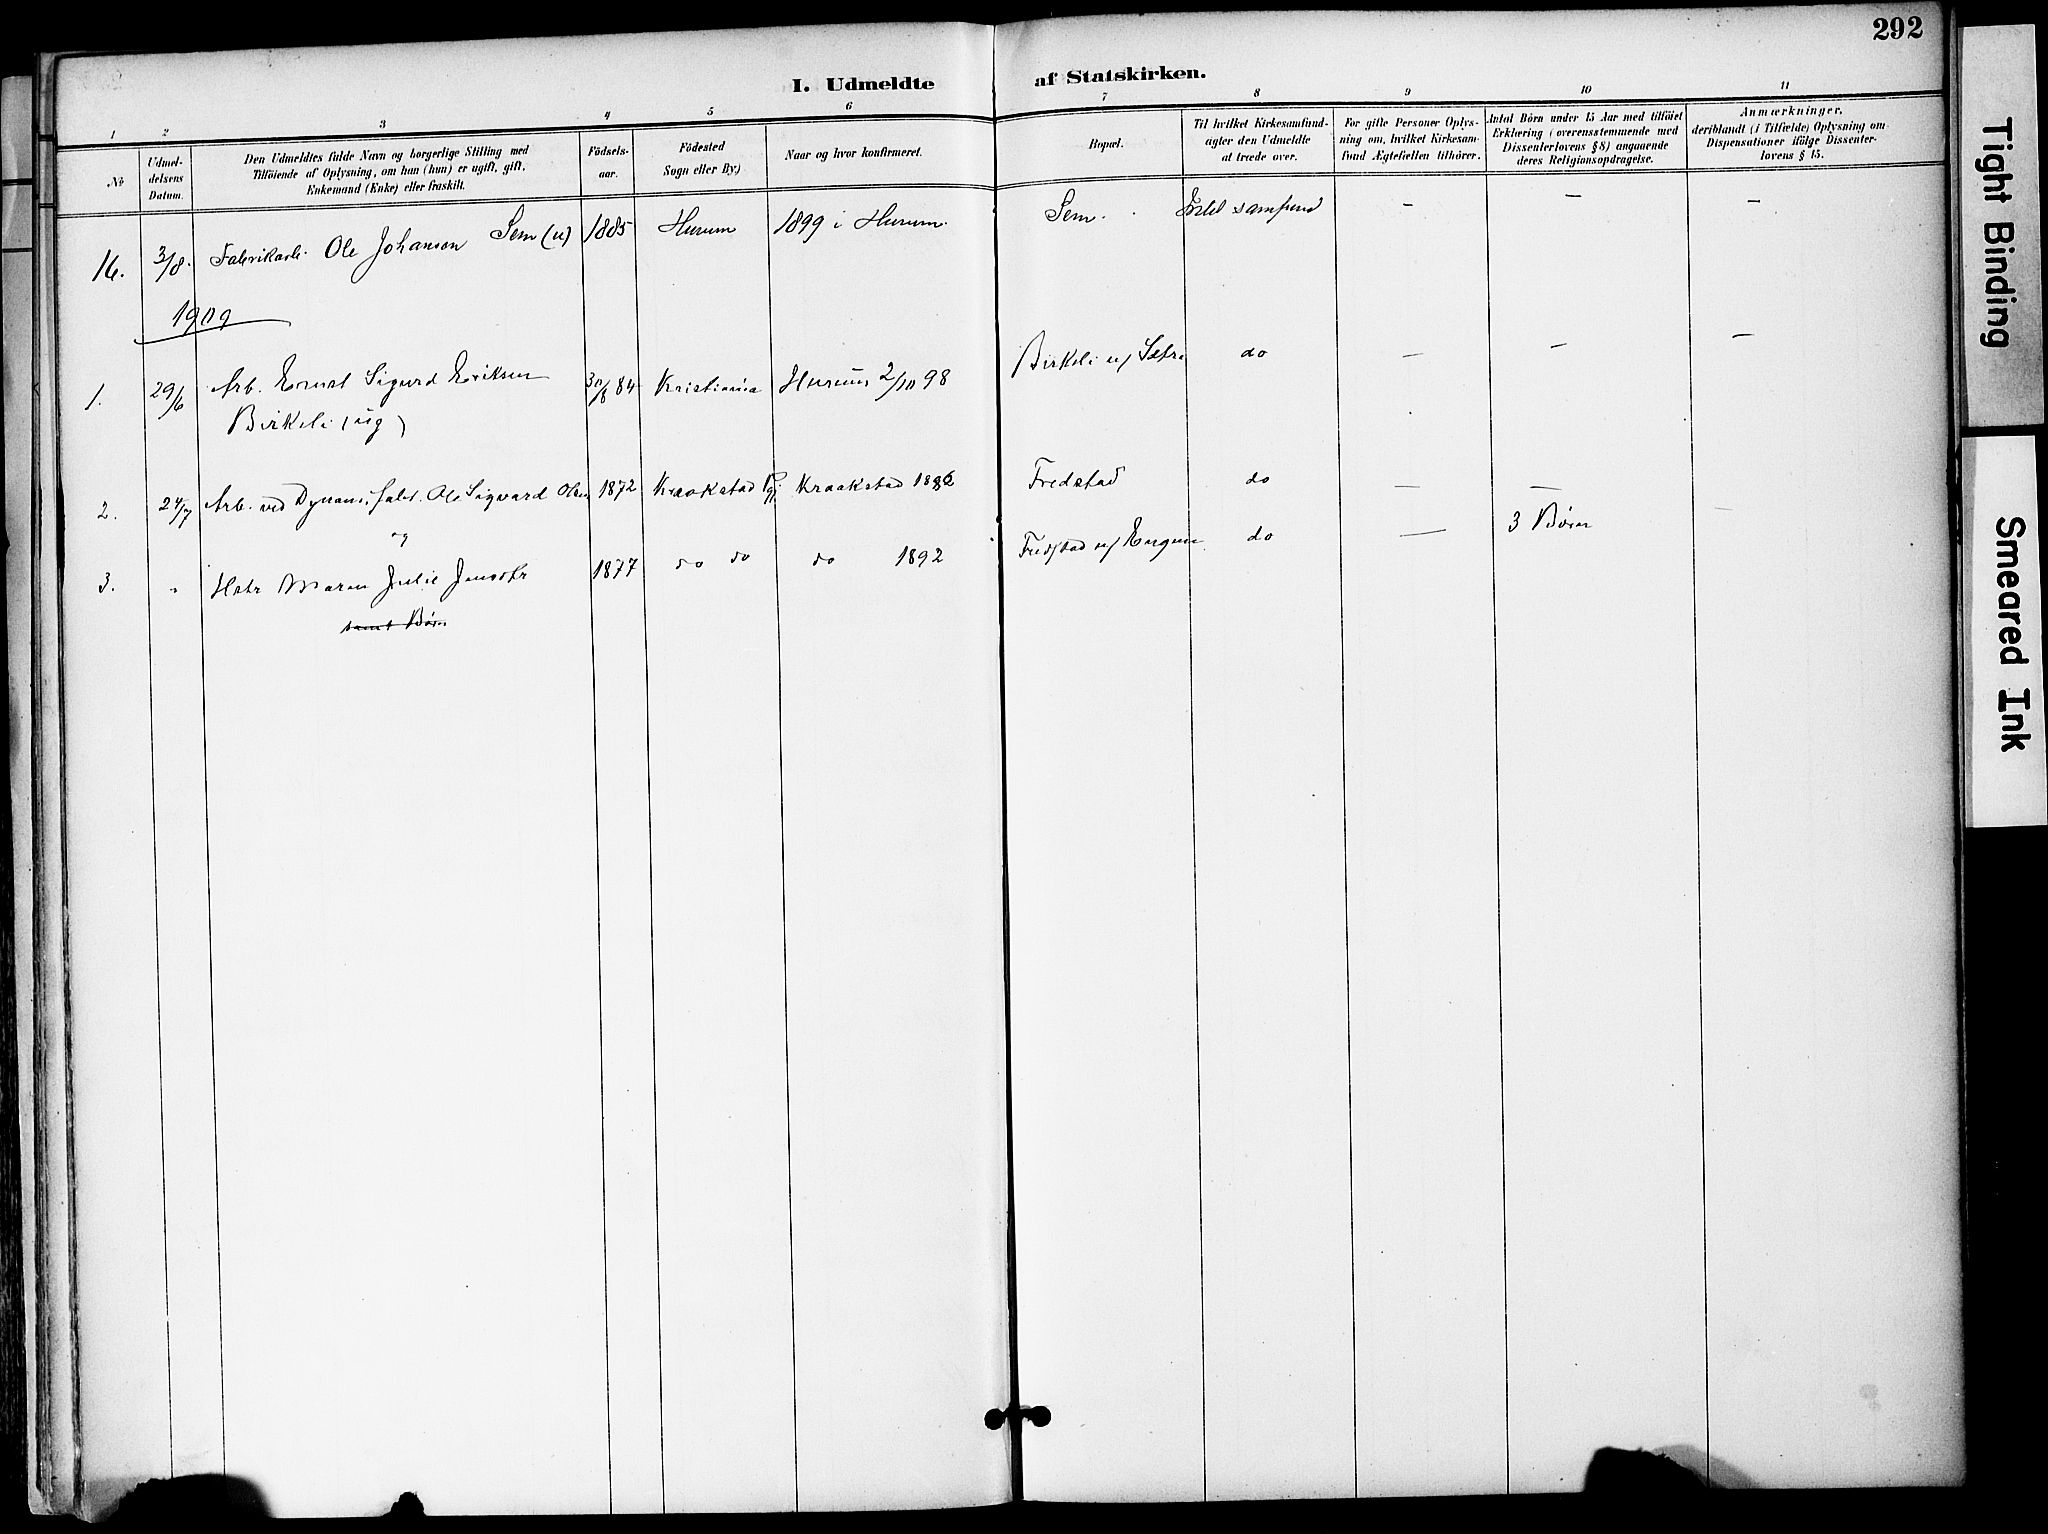 292
I. Udmeldte af Statskirken.
1 2 3 4 5 6 7 8 9 10 11
No
Udmel-
delsens
Datum.
Den Udmeldtes fulde Navn og borgerlige Stilling med
Tilföiende af Oplysning, om han (hun) er ugift, gift,
Enkemand (Enke) eller fraskilt.
Födsels-
aar.
Födested
Sogn eller By)
Naar og hvor konfirmeret.
Bopæl.
Til hvilket Kirkesamfund
agter den Udmeldte
at træde over.
For gifte Personer Oplys-
ning om, hvilket Kirkesam-
fund Ægtefællen tilhörer.
Antal Börn under 15 Aar med tilföiet
Erklæring (overensstemmende med
Dissenterlovens § 8) angaaende
deres Religionsopdragelse.
Anmærkninger,
deriblandt (i Tilfælde) Oplysning om
Dispensationer ifölge Dissenter-
lovens § 15.
16. 3/8. Fabrikarb. Ole Johanson Sem (u) 1885 Hurum 1899 i Hurum. Sem. samfund - - -
1909
1. 29/6 Arb. Ernst Sigurd Eriksen 30/8 84 Kristiania Hurum 2/10 98 Birkeli u/ Sætre do - - -
Birkeli (ug)
2. 24/7 Arb. ved Dynamitfabr. Ole Sigvard Olsen 1872 Kraakstad Pgj Kraakstad 1886 Fredstad do - -
og
3. " Hstr Maren Julie Jensdtr 1877 do do do 1892 Fredstad u/ Engene do - 3 Børn -
samt Børn
Tight Binding
Smeared Ink